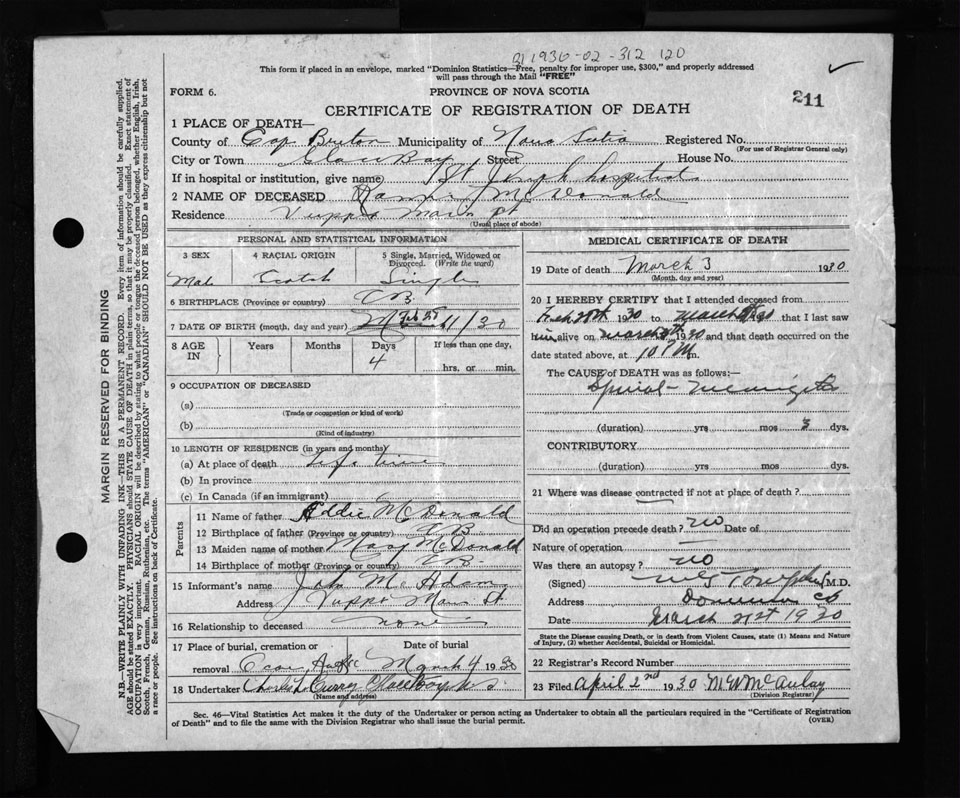 1936-02-312 120
This form if placed in an envelope, marked "Dominion Statistics—Free, penalty for improper use, $300," and properly addressed
will pass through the Mail "FREE"
FORM 6.
PROVINCE OF NOVA SCOTIA
211
CERTIFICATE OF REGISTRATION OF DEATH
1 PLACE OF DEATH—
County of Cap Breton Municipality of Nova Scotia Registered No.
(For use of Registrar General only)
City or Town Glace Bay Street House No.
If in hospital or institution, give name) St Joseph hospital
2 NAME OF DECEASED McDonald
Residence Main St
(Usual place of abode)
PERSONAL AND STATISTICAL INFORMATION
3 SEX
4 RACIAL ORIGIN
5 Single, Married, Widowed or Divorced. (Write the word)
Mal Scotch Single
6 BIRTHPLACE (Province or country) C B
7 DATE OF BIRTH (month, day and year) Feb 28 /30
8 AGE IN
Years Months Days If less than one day,
4
hrs. or min.
9 OCCUPATION OF DECEASED
(a)
(Trade or occupation or kind of work)
(b)
(Kind of industry)
10 LENGTH OF RESIDENCE (in years and months)
(a) At place of death Life time
(b) In province
(c) In Canada (if an immigrant)
Parents
11 Name of father Eddie McDonald
12 Birthplace of father (Province or country) C B
13 Maiden name of mother Mary McDonald
14 Birthplace of mother (Province or country) C B
15 Informant's name John McAdam
Address Main St
16 Relationship to deceased none
17 Place of burial, cremation or removal
Date of burial
March 4 1930
18 Undertaker Charles L Curry Glace Bay N S
(Name and address)
MEDICAL CERTIFICATE OF DEATH
19 Date of death March 3 1930
(Month, day and year)
20 I HEREBY CERTIFY that I attended deceased from
Feb 28th 1930 to March that I last saw
him alive on March 1930 and that death occurred on the
date stated above, at 10 P M m.
The CAUSE of DEATH was as follows:—
Spinal-Meningitis
(duration) yrs mos 3 dys.
CONTRIBUTORY
(duration) yrs mos dys.
21 Where was disease contracted if not at place of death?
Did an operation precede death? no Date of
Nature of operation
Was there an autopsy? no
(Signed) M.D.
Address Dominion C B
Date March 21st 1930
State the Disease causing Death, or in death from Violent Causes, state (1) Means and Nature
of Injury, (2) whether Accidental, Suicidal or Homicidal.
22 Registrar's Record Number
23 Filed April 2nd 1930 M W McAulay
(Division Registrar)
Sec. 46—Vital Statistics Act makes it the duty of the Undertaker or person acting as Undertaker to obtain all the particulars required in the "Certificate of Registration
of Death" and to file the same with the Division Registrar who shall issue the burial permit.
(OVER)
MARGIN RESERVED FOR BINDING
N.B.—WRITE PLAINLY WITH UNFADING INK—THIS IS A PERMANENT RECORD. Every item of information should be carefully supplied.
AGE should be stated EXACTLY. PHYSICIANS should STATE CAUSE OF DEATH in plain terms, so that it may be properly classified. Exact statement of
OCCUPATION is very important. RACIAL ORIGIN will be described by stating to what people or tongue the deceased person belonged, whether English, Irish,
Scotch, French, German, Russian, Ruthenian, etc. The terms "AMERICAN" or "CANADIAN" SHOULD NOT BE USED as they express citizenship but not
a race or people. See instructions on back of Certificate.